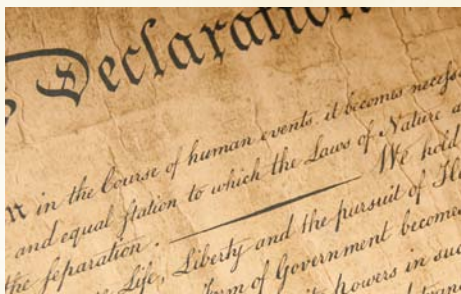 Declaration
n in the Course of human events, it becomes necess
and equal station to which the Laws of Nature a
the separation. We hold
Life, Liberty and the pursuit of H
Form of Government becomes
powers in suc